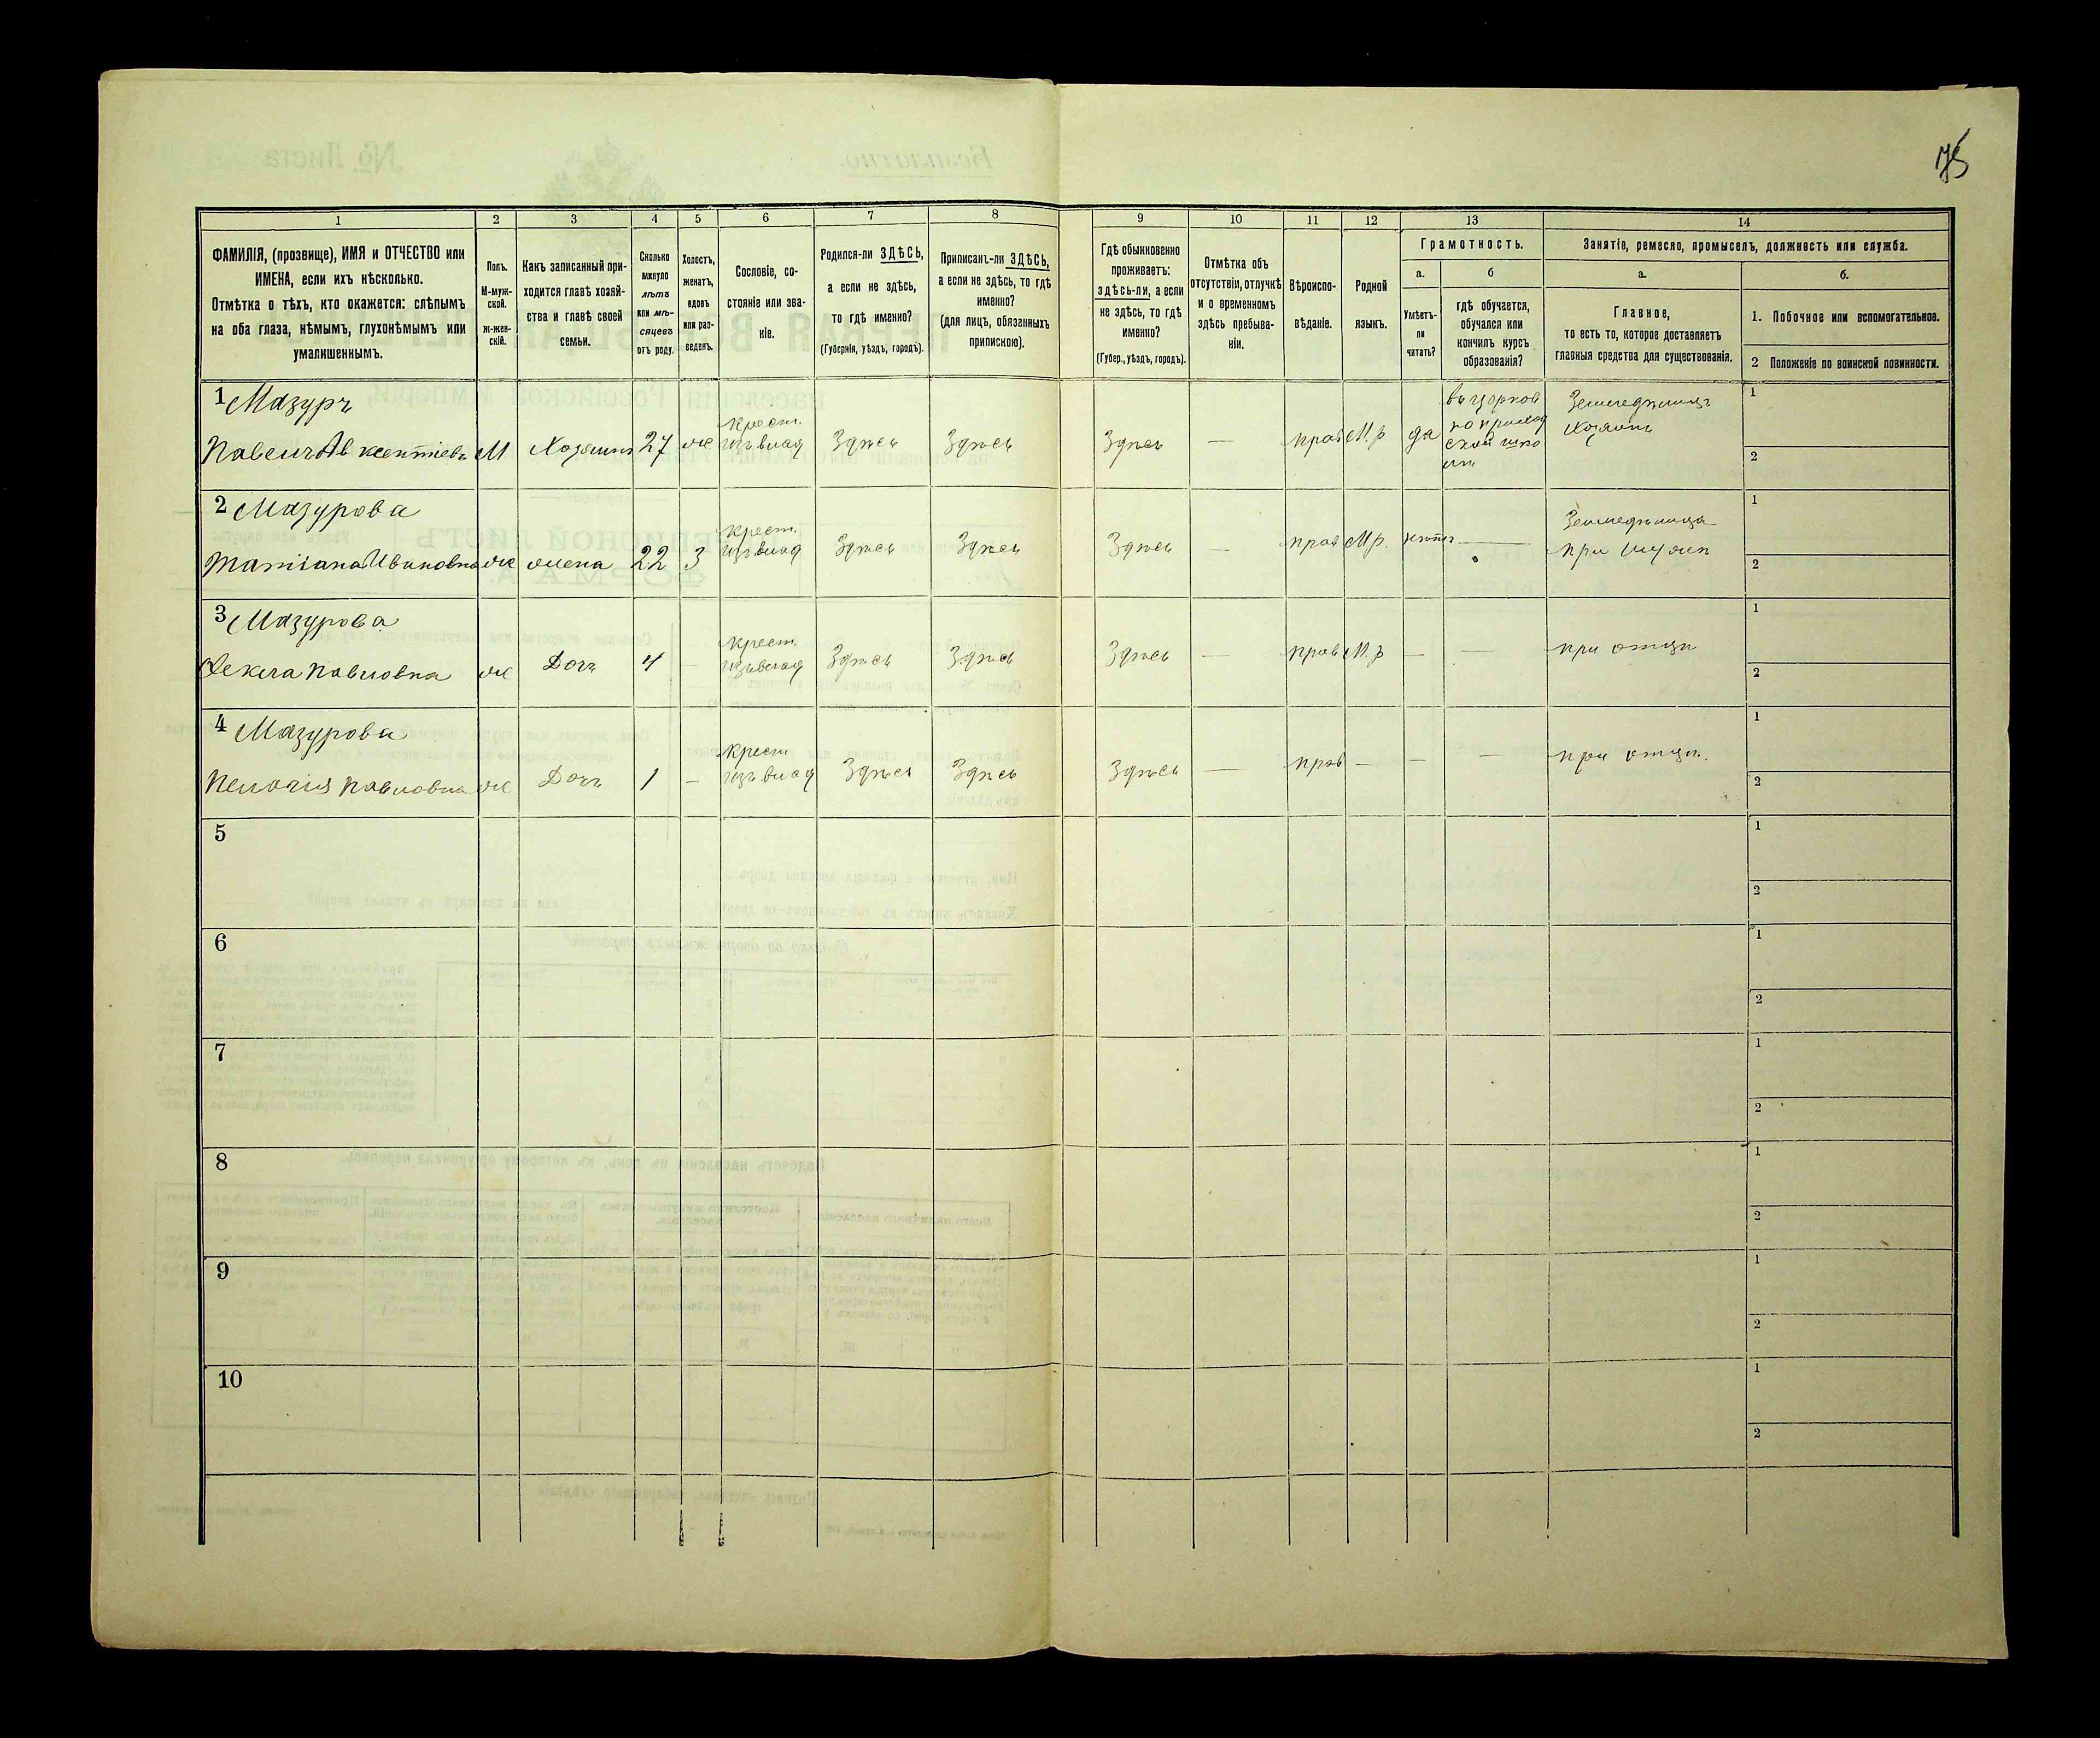 75
1
2
3
4
5
6
7
8
9
10
11
12
13
14
ФАМИЛІЯ, (прозвище), ИМЯ и ОТЧЕСТВО или
ИМЕНА, если ихъ нѣсколько.
Отмѣтка о тѣхъ, кто окажется: слѣпымъ
на оба глаза, нѣмымъ, глухонѣмымъ или
умалишеннымъ.
Полъ.
М-муж-
ской.
ж-жен-
скій.
Какъ записанный при-
ходится главѣ хозяй-
ства и главѣ своей
семьи.
Сколько
минуло
лѣтъ
или мѣ-
сяцевъ
отъ роду.
Холостъ,
женатъ,
вдовъ
или раз-
веденъ.
Сословіе, со-
стояніе или зва-
ніе.
Родился-ли ЗДѢСЬ,
а если не здѣсь,
то гдѣ именно?
(Губернія, уѣздъ, городъ).
Приписанъ-ли ЗДѢСЬ,
а если не здѣсь, то гдѣ
именно?
(для лицъ, обязанныхъ
припискою).
Гдѣ обыкновенно
проживаетъ:
здѣсь-ли, а если
не здѣсь, то гдѣ
именно?
(Губер., уѣздъ, городъ).
Отмѣтка объ
отсутствіи, отлучкѣ
и о временномъ
здѣсь пребыва-
ніи.
Вѣроиспо-
вѣданіе.
Родной
языкъ.
Грамотность.
а.
Умѣетъ-
ли
читать?
б
гдѣ обучается,
обучался или
кончилъ курсъ
образованія?
Занятіе, ремесло, промыселъ, должность или служба.
а.
Главное,
то есть то, которое доставляетъ
главныя средства для существованія.
б.
1. Побочное или вспомогательное.
2 Положеніе по воинской повинности.
1 Мазуръ
Павелъ Авксентіевъ
М
Хозяинъ
27
ж
Крест.
изъ влад
Здѣсь
Здѣсь
Здѣсь
—
прав
М. р
да
въ церков
но приход
ской шко
лѣ
Земледѣлецъ
Хозяинъ
1
2
2 Мазурова
Татіана Ивановна
ж
жена
22
З
Крест.
изъ влад
Здѣсь
Здѣсь
Здѣсь
—
прав
М р.
нѣтъ
—
Земледѣлица
при мужѣ
1
2
3 Мазурова
Фекла Павловна
ж
Дочь
4
—
Крест.
изъ влад
Здѣсь
Здѣсь
Здѣсь
—
прав
М. р
—
—
при отцѣ
1
2
4 Мазурова
Пелагія Павловна
ж
Дочь
1
—
Крест
изъ влад
Здѣсь
Здѣсь
Здѣсь
—
прав
—
—
—
при отцѣ.
1
2
5
1
2
6
1
2
7
1
2
8
1
2
9
1
2
10
1
2